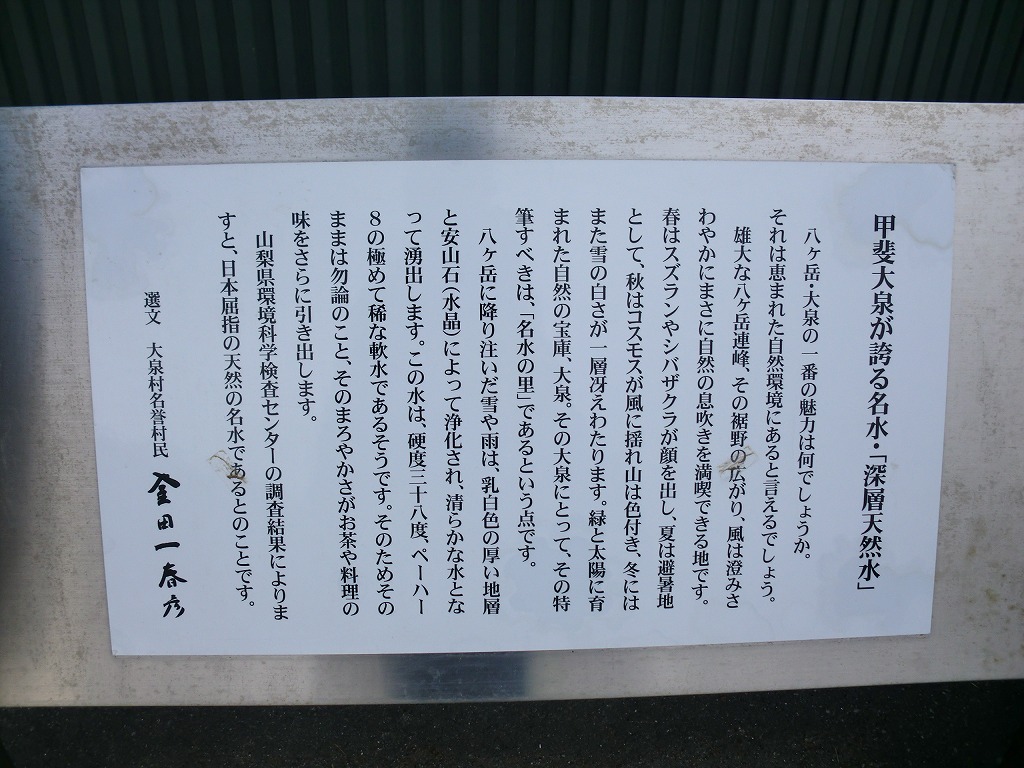 甲斐大泉が誇る名水・「深層天然水」
八ヶ岳・大泉の一番の魅力は何でしょうか。
それは恵まれた自然環境にあると言えるでしょう。
雄大な八ヶ岳連峰、その裾野の広がり、風は澄みさ
わやかにまさに自然の息吹きを満喫できる地です。
春はスズランやシバザクラが顔を出し、夏は避暑地
として、秋はコスモスが風に揺れ山は色付き、冬には
また雪の白さが一層冴えわたります。緑と太陽に育
まれた自然の宝庫、大泉。その大泉にとって、その特
筆すべきは、「名水の里」であるという点です。
八ヶ岳に降り注いだ雪や雨は、乳白色の厚い地層
と安山石(水晶)によって浄化され、清らかな水とな
って湧出します。この水は、硬度三十八度、ペーハー
8の極めて稀な軟水であるそうです。そのためその
ままは勿論のこと、そのまろやかさがお茶や料理の
味をさらに引き出します。
山梨県環境科学検査センターの調査結果によりま
すと、日本屈指の天然の名水であるとのことです。
選文 大泉村名誉村民 金田一春彦